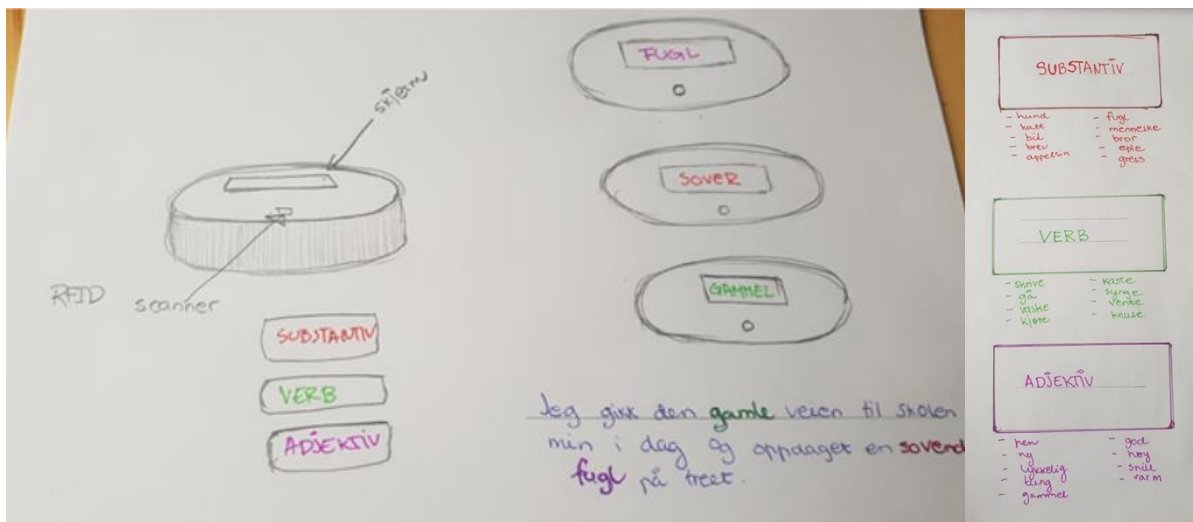 skjerm
RFID
scanner
SUBSTANTIV
VERB
ADJEKTIV
FUGL
SOVER
GAMMEL
Jeg gikk den gamle veien til skolen
min i dag og oppdaget en sovend
fugl på treet.
SUBSTANTIV
- hund
- katt
- bil
- brev
- appelsin
- fugl
- menneske
- bror
- eple
- gress
VERB
- skrive
- gå
- vaske
- kjøre
- kaste
- synge
- vente
- knuse
ADJEKTIV
- pen
- ny
- lykkelig
- tung
- gammel
- god
- høy
- snill
- varm